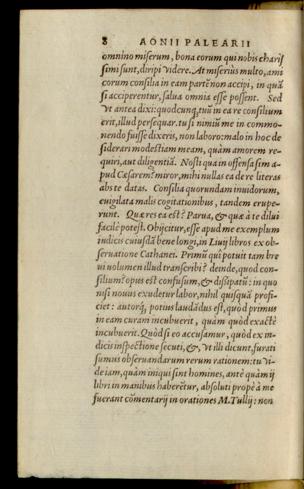 8 AONII PALEARII
omnino miserum, bona eorum qui nobis charis
simi sunt, diripi videre. At miserius multo, ami
corum consilia in eam partē non accipi, in quā
si acciperentur, salua omnia esse possent. Sed
vt antea dixi: quodcunq; tuū in ea re consilium
erit, illud persequar. tu si nimiū me in commo-
nendo fuisse dixeris, non laboro: malo in hoc de
siderari modestiam meam, quàm amorem re-
quiri, aut diligentiā. Nosti qua in offensa sim a-
pud Cæsarem? miror, mihi nullas ea de re literas
abs te datas. Consilia quorundam inuidorum,
euigilata malis cogitationibus, tandem erupe-
runt. Quæ res ea est? Parua, & quæ à te dilui
facilè potest. Obijcitur, esse apud me exemplum
indicis cuiusdā bene longi, in Liuij libros ex ob-
seruatione Cathanei. Primū quî potuit tam bre
ui volumen illud transcribi? deinde, quod con-
silium? opus est confusum, & dissipatū: in quo
nisi nouus exudetur labor, nihil quisquā profi-
ciet: autorq́; potius laudādus est, quòd primus
in eam curam incubuerit, quàm quòd exactè
incubuerit. Quòd si eo accusamur, quòd ex in-
dicis inspectione secuti, &, vt illi dicunt, furati
sumus obseruandarum rerum rationem: tu vi-
de iam, quàm iniqui sint homines, antè quàm ij
libri in manibus haberētur, absoluti propè à me
fuerant cōmentarij in orationes M. Tullij: non